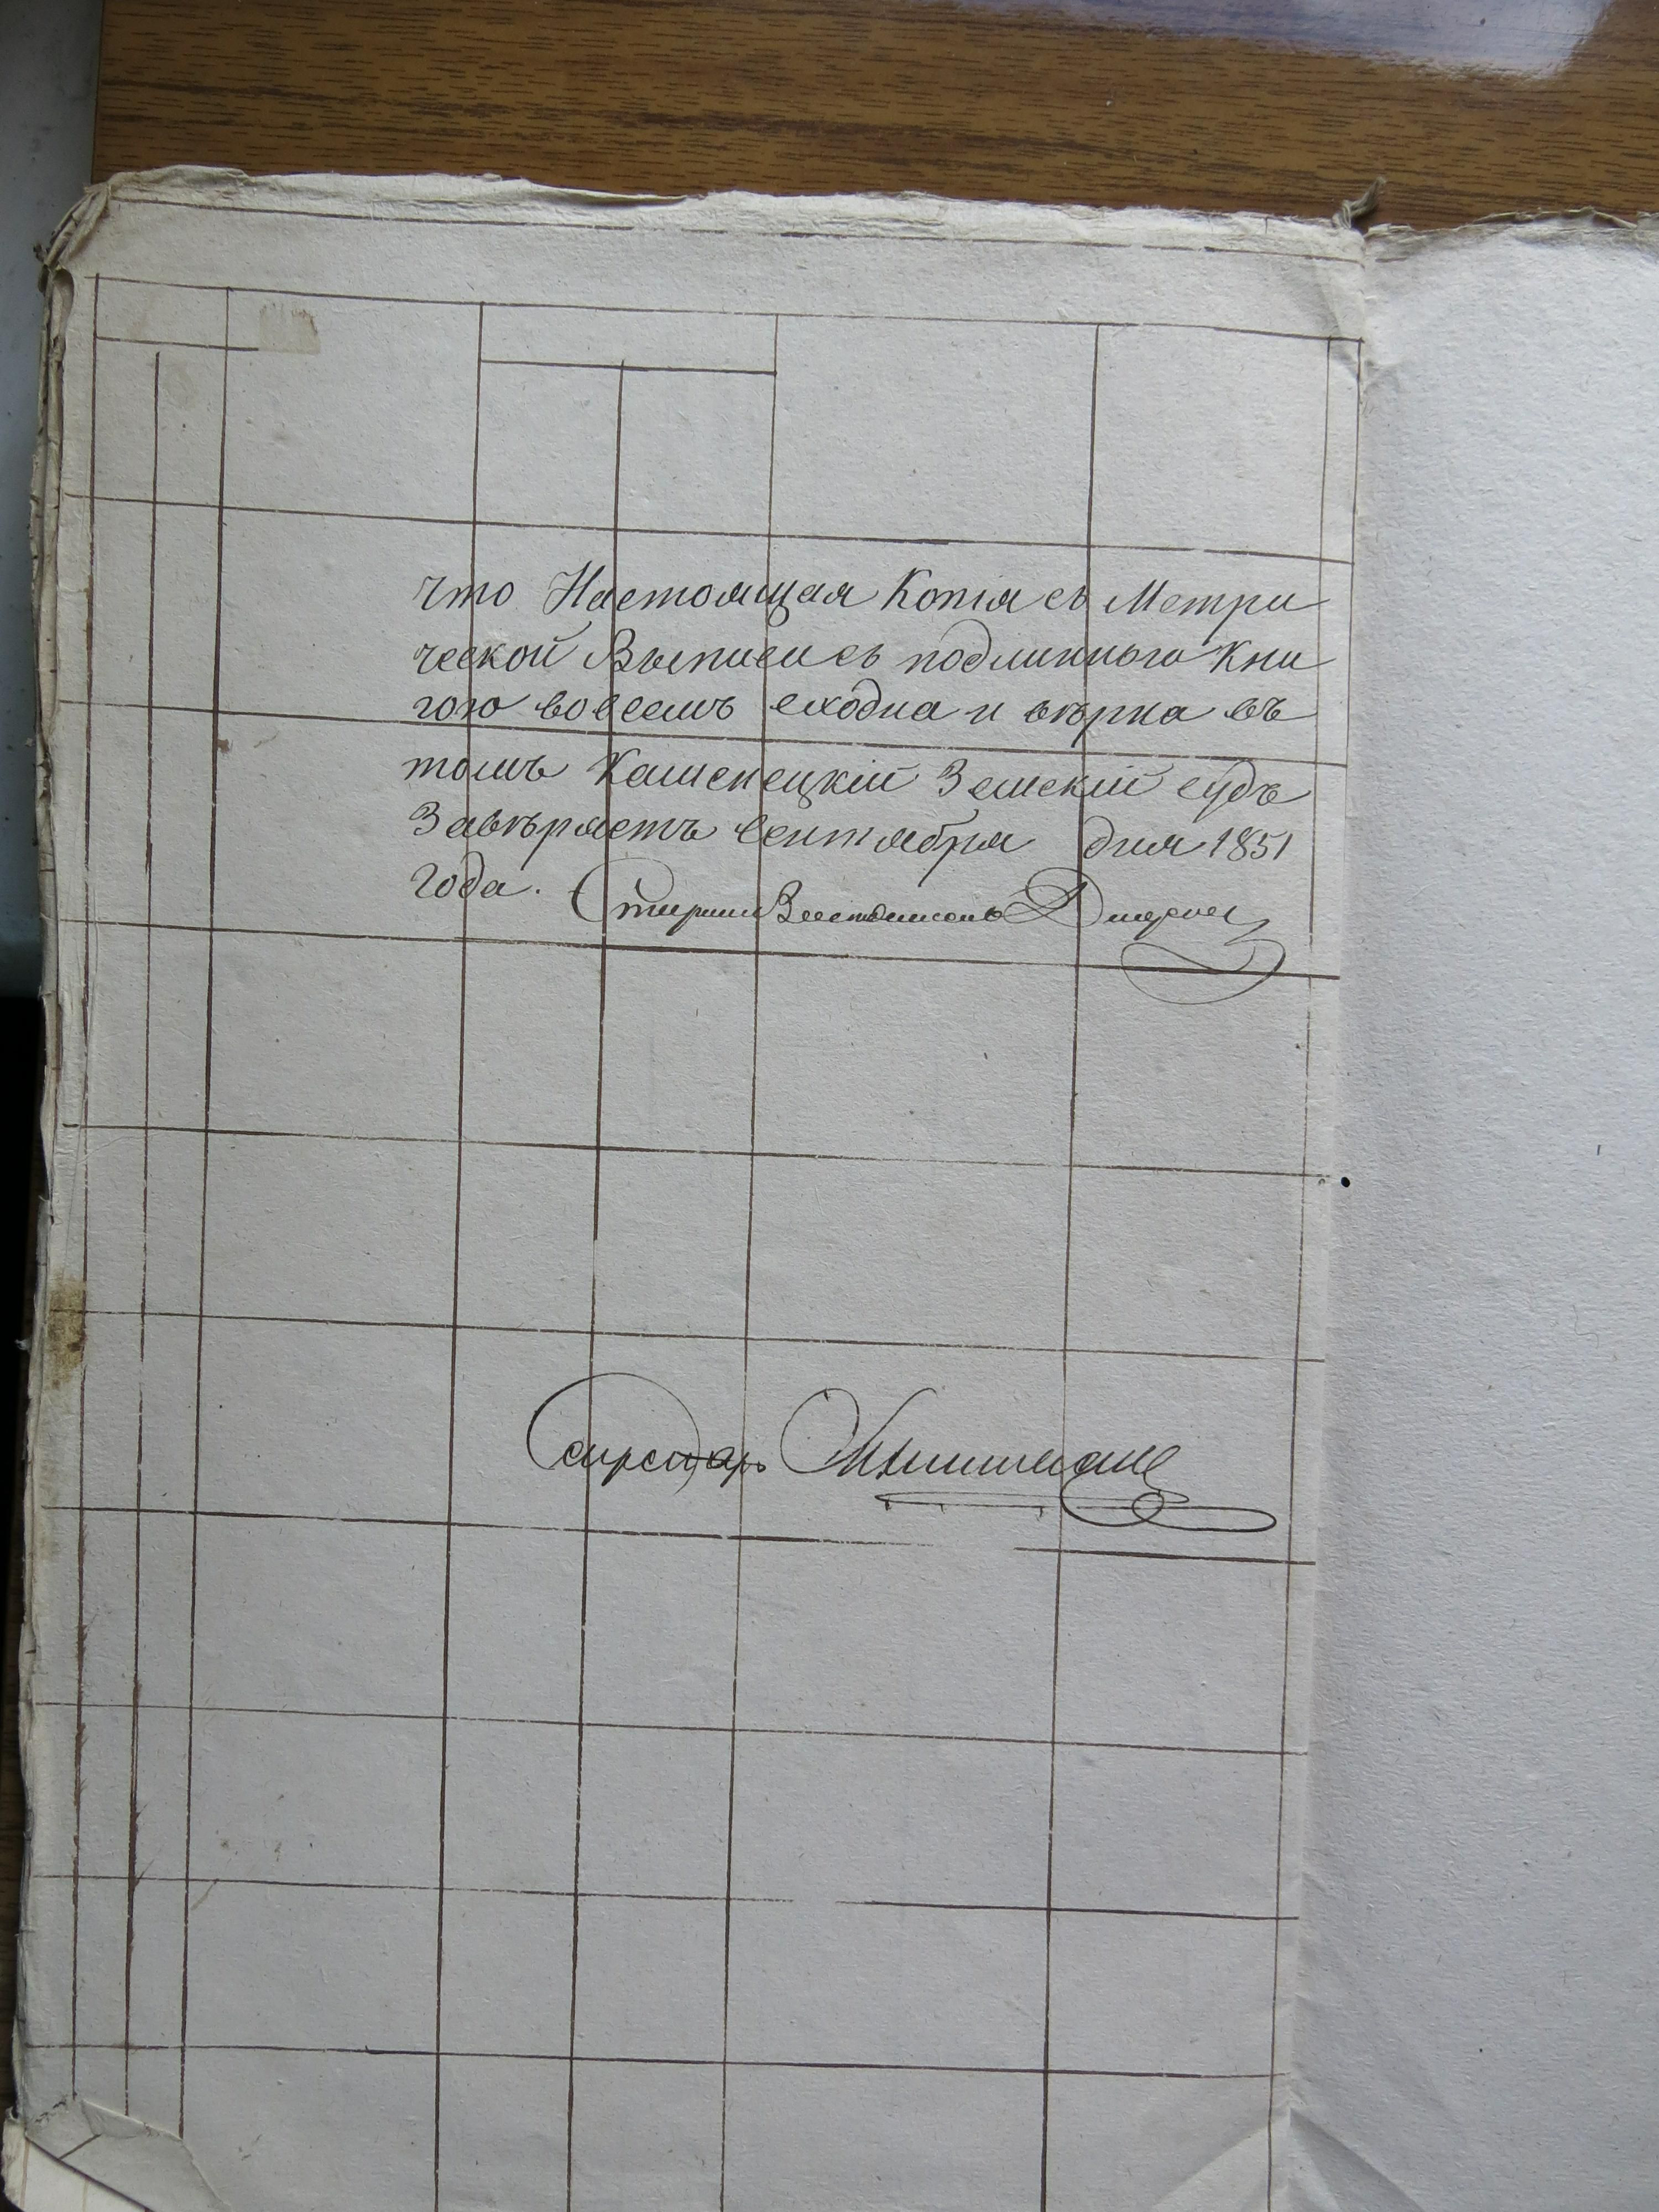 что Настоящая Копія съ Метри
ческой Выписи съ подлинною Кни
гою во всемъ сходна и вѣрна въ
томъ Каменецкій Земскій судъ
Завѣряетъ Сентября дня 1851
года. Старший Засѣдатель
Секретарь